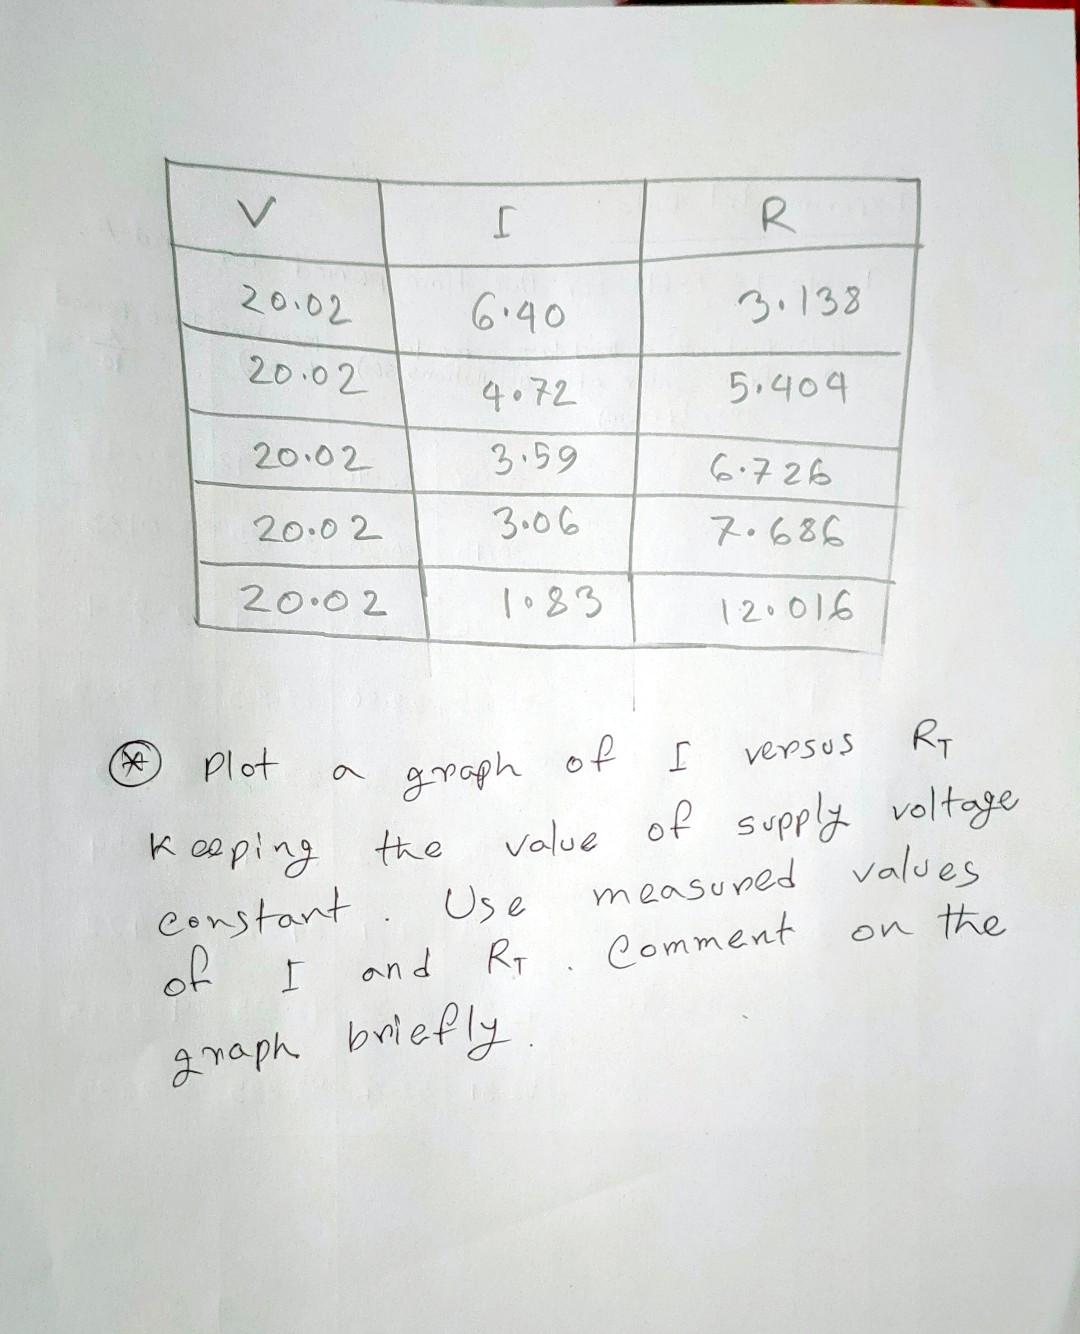 V I R
20.02 6.40 3.138
20.02 4.72 5.404
20.02 3.59 6.726
20.02 3.06 7.686
20.02 1.83 12.016
* Plot a graph of I versus RT
keeping the value of supply voltage
constant. Use measured values
of I and RT. Comment on the
graph briefly.